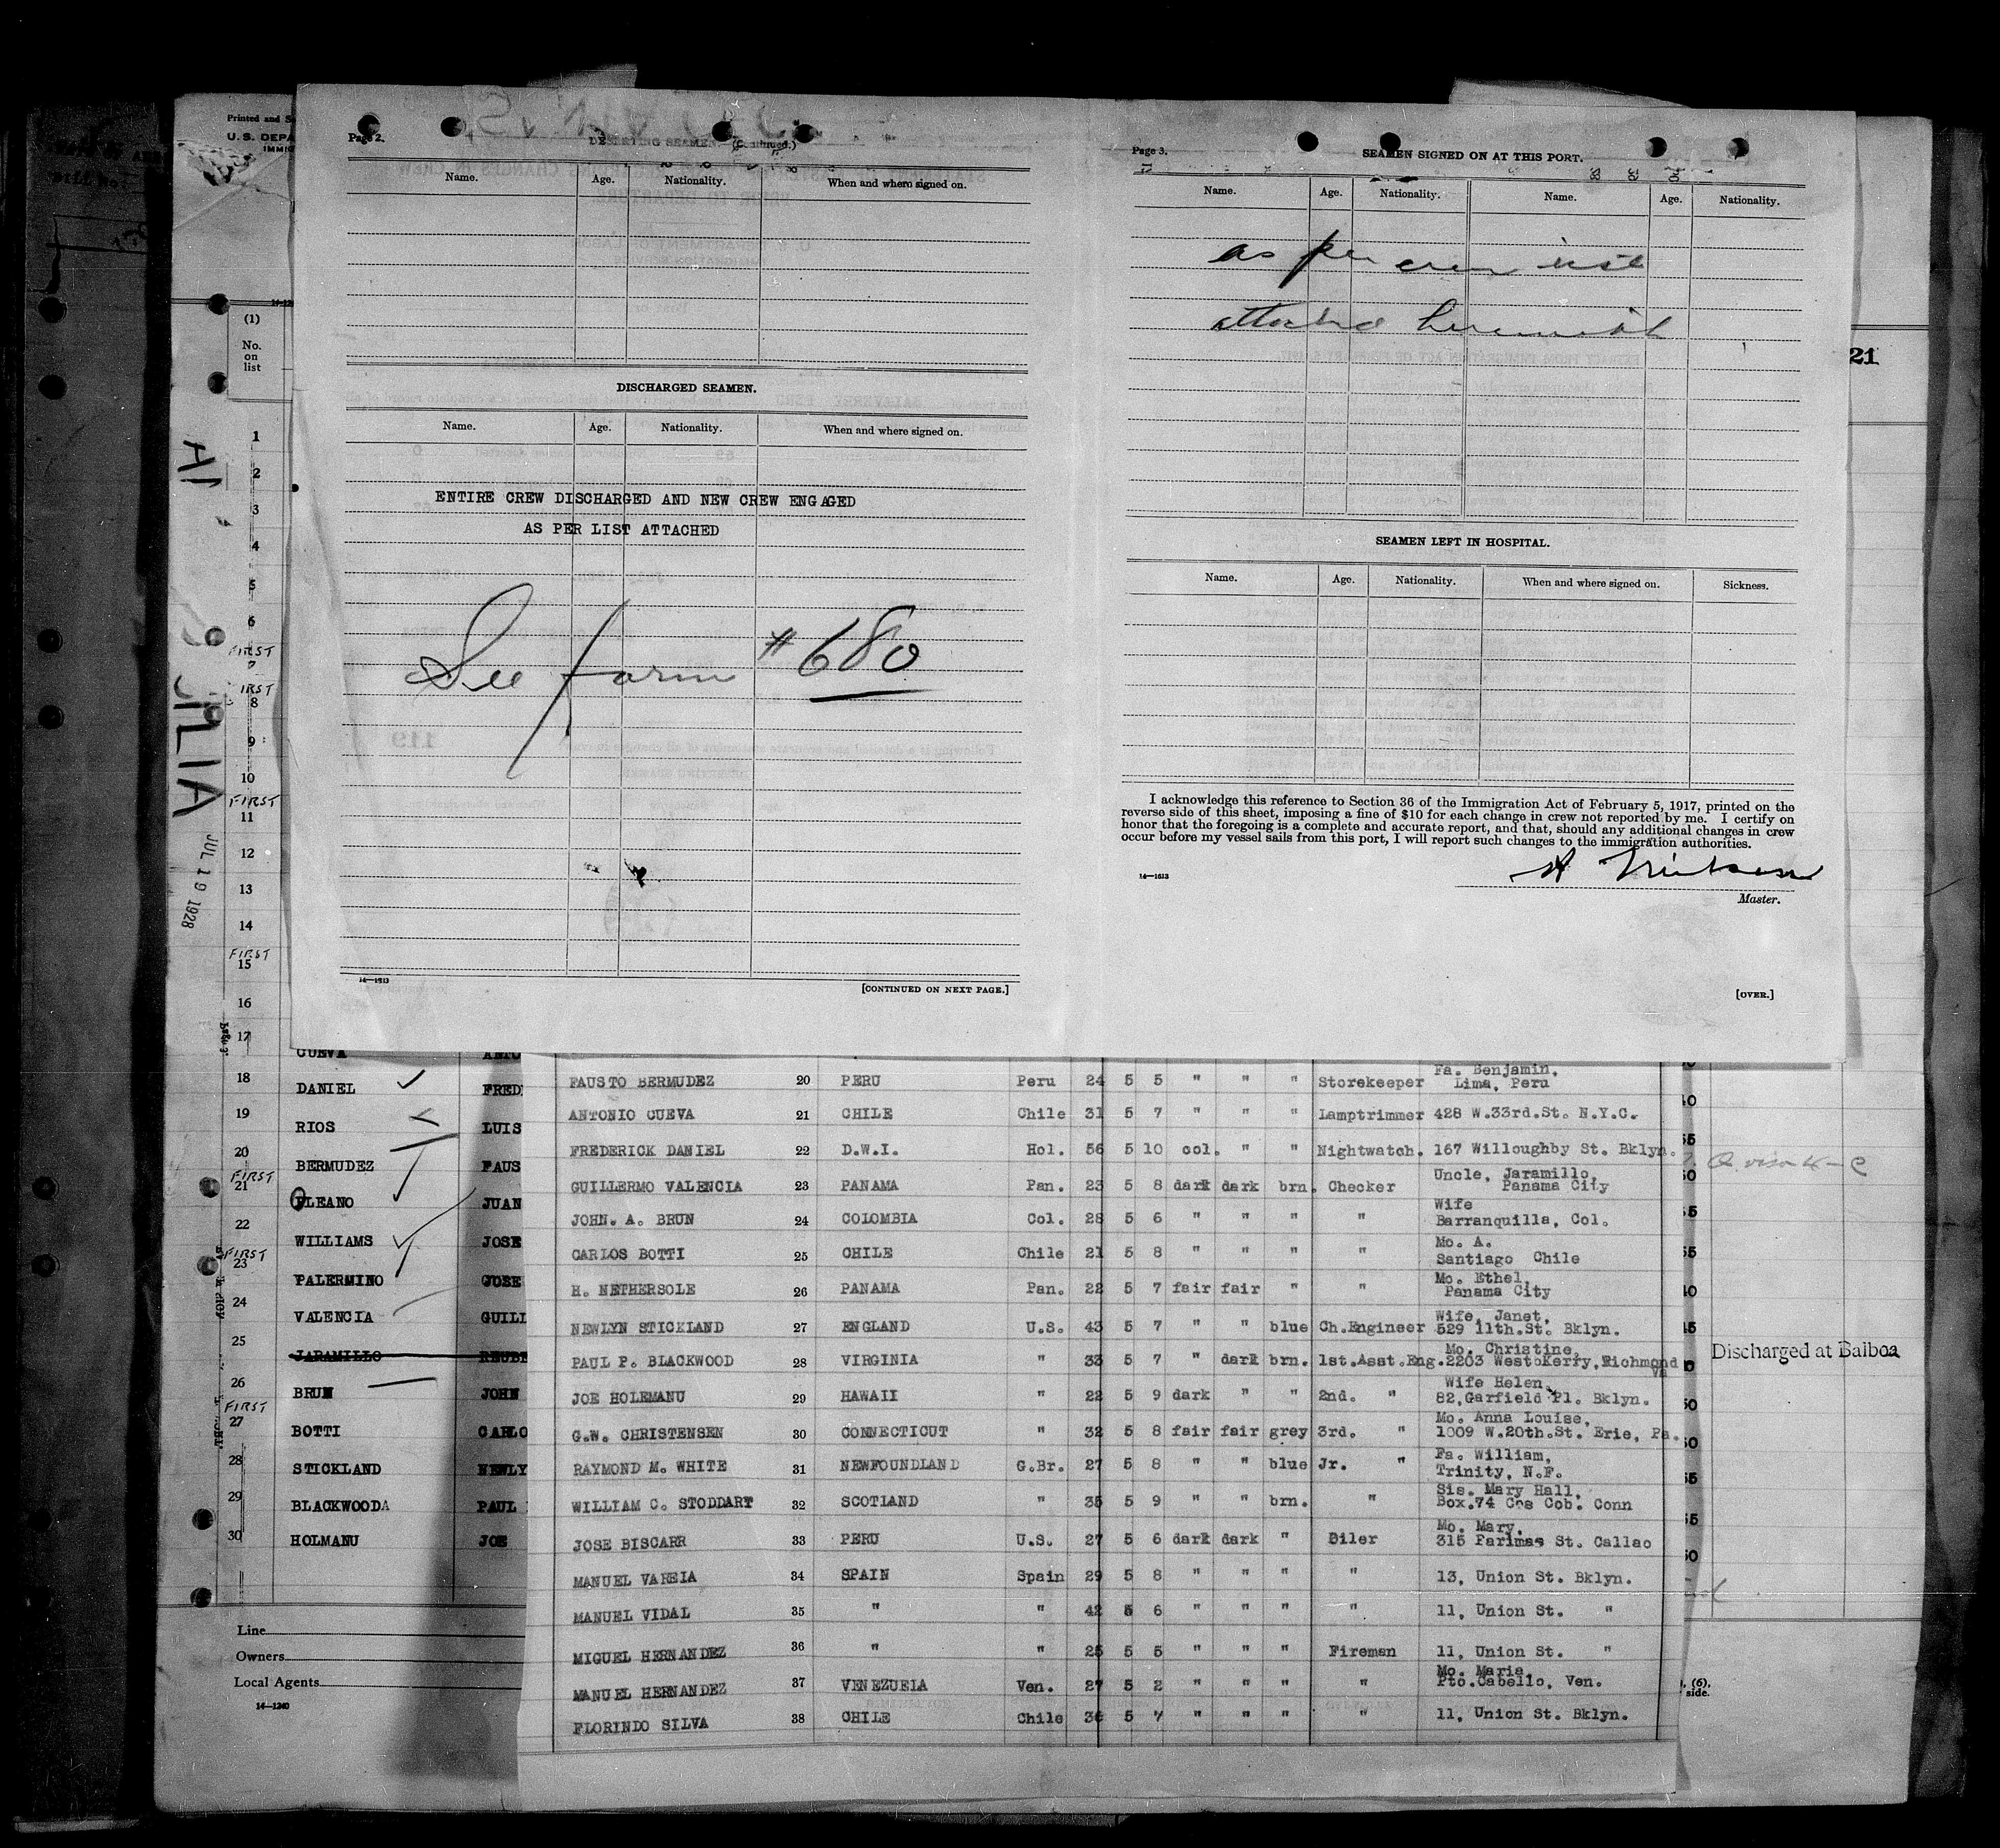 Page 2.
DESERTING SEAMEN. (Continued.)
Name. Age. Nationality. When and where signed on.
DISCHARGED SEAMEN.
Name. Age. Nationality. When and where signed on.
ENTIRE CREW DISCHARGED AND NEW CREW ENGAGED
AS PER LIST ATTACHED
See form #680
14—1613
[CONTINUED ON NEXT PAGE.]
Page 3.
SEAMEN SIGNED ON AT THIS PORT.
Name. Age. Nationality. Name. Age. Nationality.
as per crew list
attached herewith
SEAMEN LEFT IN HOSPITAL.
Name. Age. Nationality. When and where signed on. Sickness.
I acknowledge this reference to Section 36 of the Immigration Act of February 5, 1917, printed on the
reverse side of this sheet, imposing a fine of $10 for each change in crew not reported by me. I certify on
honor that the foregoing is a complete and accurate report, and that, should any additional changes in crew
occur before my vessel sails from this port, I will report such changes to the immigration authorities.
14—1613
Master.
[OVER.]
Printed and S
U.S. DEPA
IMMIG
(1)
No.
on
list
21
JUL 19 1928
1
2
3
4
5
6
FIRST
IRST
8
9
10
FIRST
11
12
13
14
FIRST
15
16
17
CUEVA ANTO
18
DANIEL FRED
19
RIOS LUIS
20
BERMUDEZ FAUS
FIRST
21
OLEANO JUAN
22
WILLIAMS JOSE
FIRST
23
PALERMINO JOSE
24
VALENCIA GUILL
25
JARAMILLO REUBE
26
BRUN JOHN
FIRST
27
BOTTI CARLO
28
STICKLAND NEWLY
29
BLACKWOODA PAUL
30
HOLMANU JOE
Line
Owners
Local Agents
14—1240
FAUSTO BERMUDEZ 20 PERU Peru 24 5 5 " " " Storekeeper Fa. Benjamin, Lima, Peru
ANTONIO CUEVA 21 CHILE Chile 31 5 7 " " " Lamptrimmer 428 W.33rd.St. N.Y.C.
FREDERICK DANIEL 22 D.W.I. Hol. 56 5 10 col. " " Nightwatch. 167 Willoughby St. Bklyn.
GUILLERMO VALENCIA 23 PANAMA Pan. 23 5 8 dark dark brn. Checker Uncle, Jaramillo, Panama City
JOHN. A. BRUN 24 COLOMBIA Col. 28 5 6 " " " " Wife Barranquilla, Col.
CARLOS BOTTI 25 CHILE Chile 21 5 8 " " " " Mo. A. Santiago Chile
H. NETHERSOLE 26 PANAMA Pan. 22 5 7 fair fair " " Mo. Ethel, Panama City
NEWLYN STICKLAND 27 ENGLAND U.S. 43 5 7 " " blue Ch.Engineer Wife, Janet, 529 11th.St. Bklyn.
PAUL P. BLACKWOOD 28 VIRGINIA " 33 5 7 " dark brn. 1st.Asst.Eng. Mo. Christine, 2203 West Kerry, Richmond Va
JOE HOLEMANU 29 HAWAII " 22 5 9 dark " " 2nd. " Wife Helen, 82,Garfield Pl. Bklyn.
G.W. CHRISTENSEN 30 CONNECTICUT " 32 5 8 fair fair grey 3rd. " Mo. Anna Louise, 1009 W.20th.St. Erie, Pa.
RAYMOND M. WHITE 31 NEWFOUNDLAND G.Br. 27 5 8 " " blue Jr. " Fa. William, Trinity, N.F.
WILLIAM C. STODDART 32 SCOTLAND " 35 5 9 " " brn. " Sis. Mary Hall, Box.74 Cos Cob. Conn
JOSE BISCARR 33 PERU U.S. 27 5 6 dark dark " Oiler Mo. Mary, 315 Farimas St. Callao
MANUEL VAREIA 34 SPAIN Spain 29 5 8 " " " " 13, Union St. Bklyn.
MANUEL VIDAL 35 " " 42 5 6 " " " " 11, Union St. "
MIGUEL HERNANDEZ 36 " " 25 5 5 " " " Fireman 11, Union St. "
MANUEL HERNANDEZ 37 VENEZUELA Ven. 27 5 2 " " " " Mo. Maria, Pto.Cabello, Ven.
FLORINDO SILVA 38 CHILE Chile 36 5 7 " " " " 11, Union St. Bklyn.
Discharged at Balboa
(6),
side.